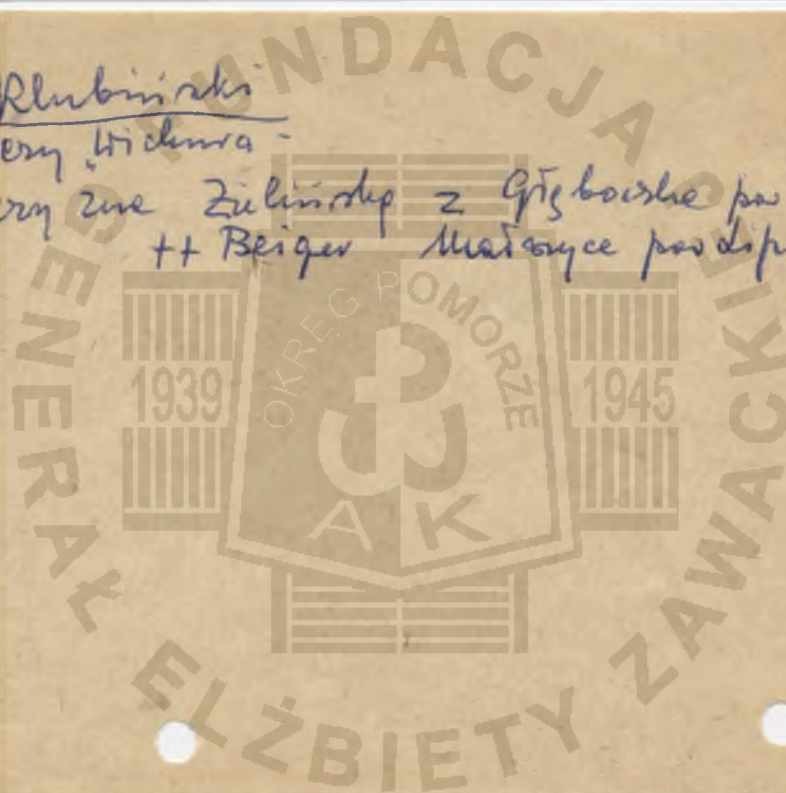 Klubiński
erzy "Wichura"
erzy zna Zielińskę z Głęboczka pow
++ Beiger Małoszyce pow Lip
FUNDACJA GENERAŁ ELŻBIETY ZAWACKIEJ
OKRĘG POMORZE
1939 1945
AK